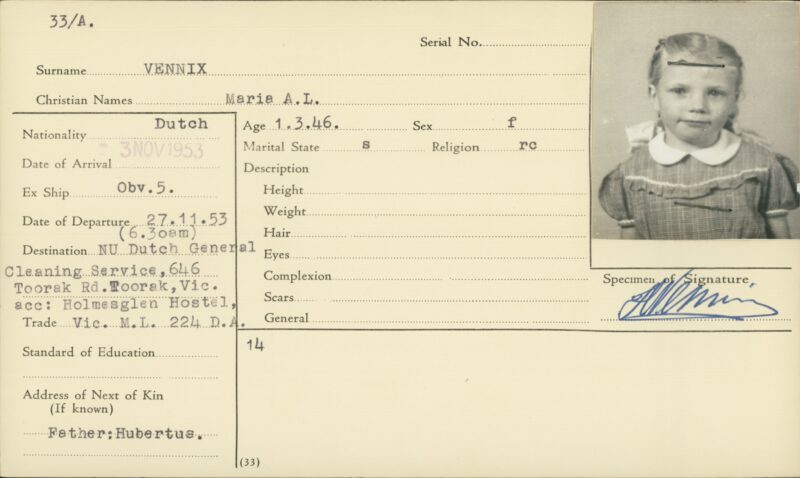 33/A.
Serial No.
Surname VENNIX
Christian Names Maria A.L.
Nationality Dutch
Date of Arrival 3 NOV 1953
Ex Ship Obv.5.
Date of Departure 27.11.53
(6.30am)
Destination NU Dutch General
Cleaning Service,646
Toorak Rd.Toorak,Vic.
acc: Holmesglen Hostel,
Trade Vic. M.L. 224 D.A.
Standard of Education
Address of Next of Kin
(If known)
Father:Hubertus.
Age 1.3.46. Sex f
Marital State s Religion rc
Description
Height
Weight
Hair
Eyes
Complexion
Scars
General
Specimen of Signature
14
(33)